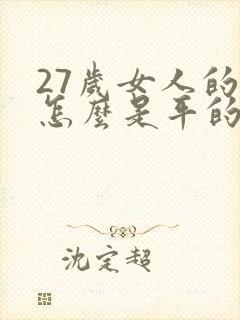 27歲女人的
怎麼是平的
沈定超